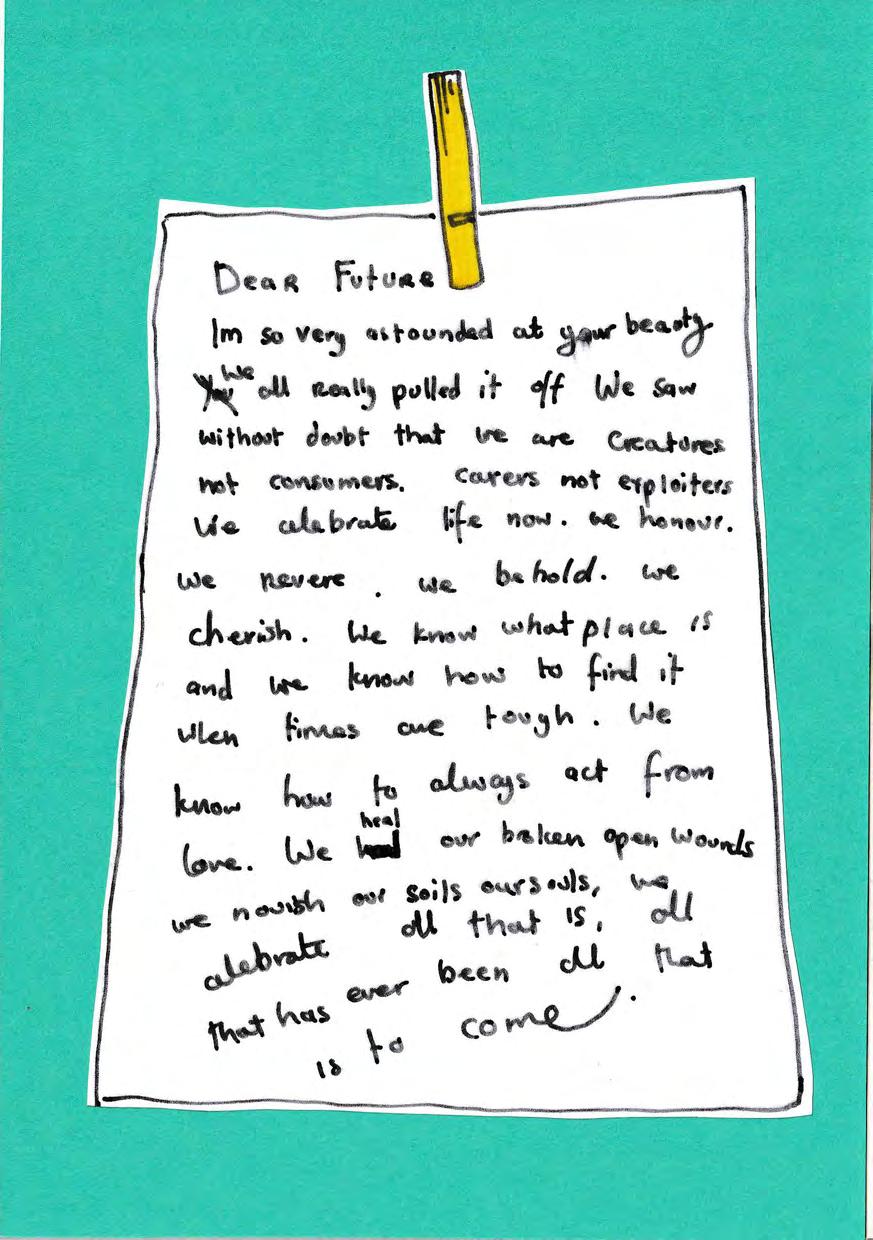 Dear Future
Im so very astounded at your beauty
We all really pulled it off We saw
without doubt that we are Creatures
not consumers. Carers not exploiters
We celebrate life now. we honour.
We revere. we behold. we
cherish. We know what place is
and we know how to find it
when times are tough. We
know how to always act from
love. We heal our broken open wounds
we nourish our soils our souls, we
celebrate all that is, all
that has ever been all that
is to come.